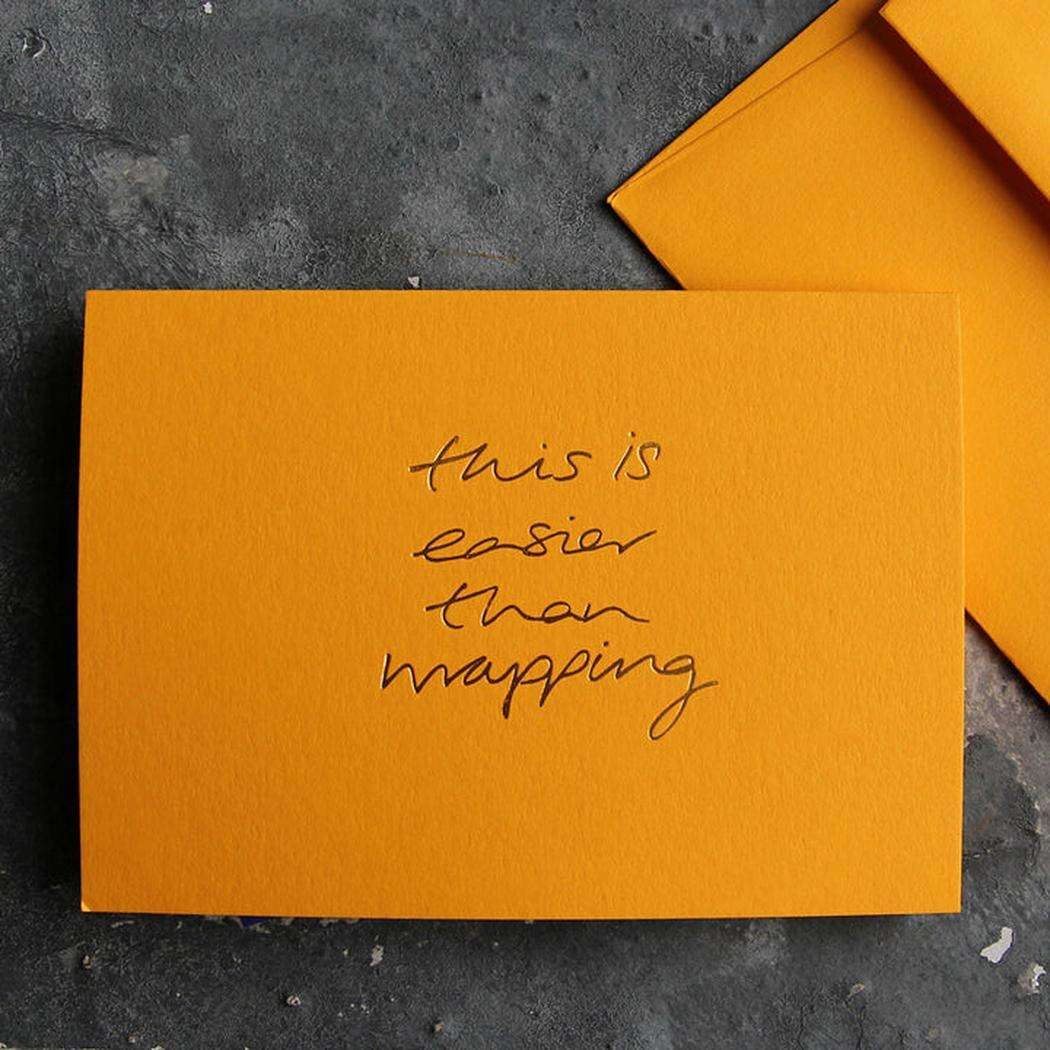 this is
easier
than
mapping